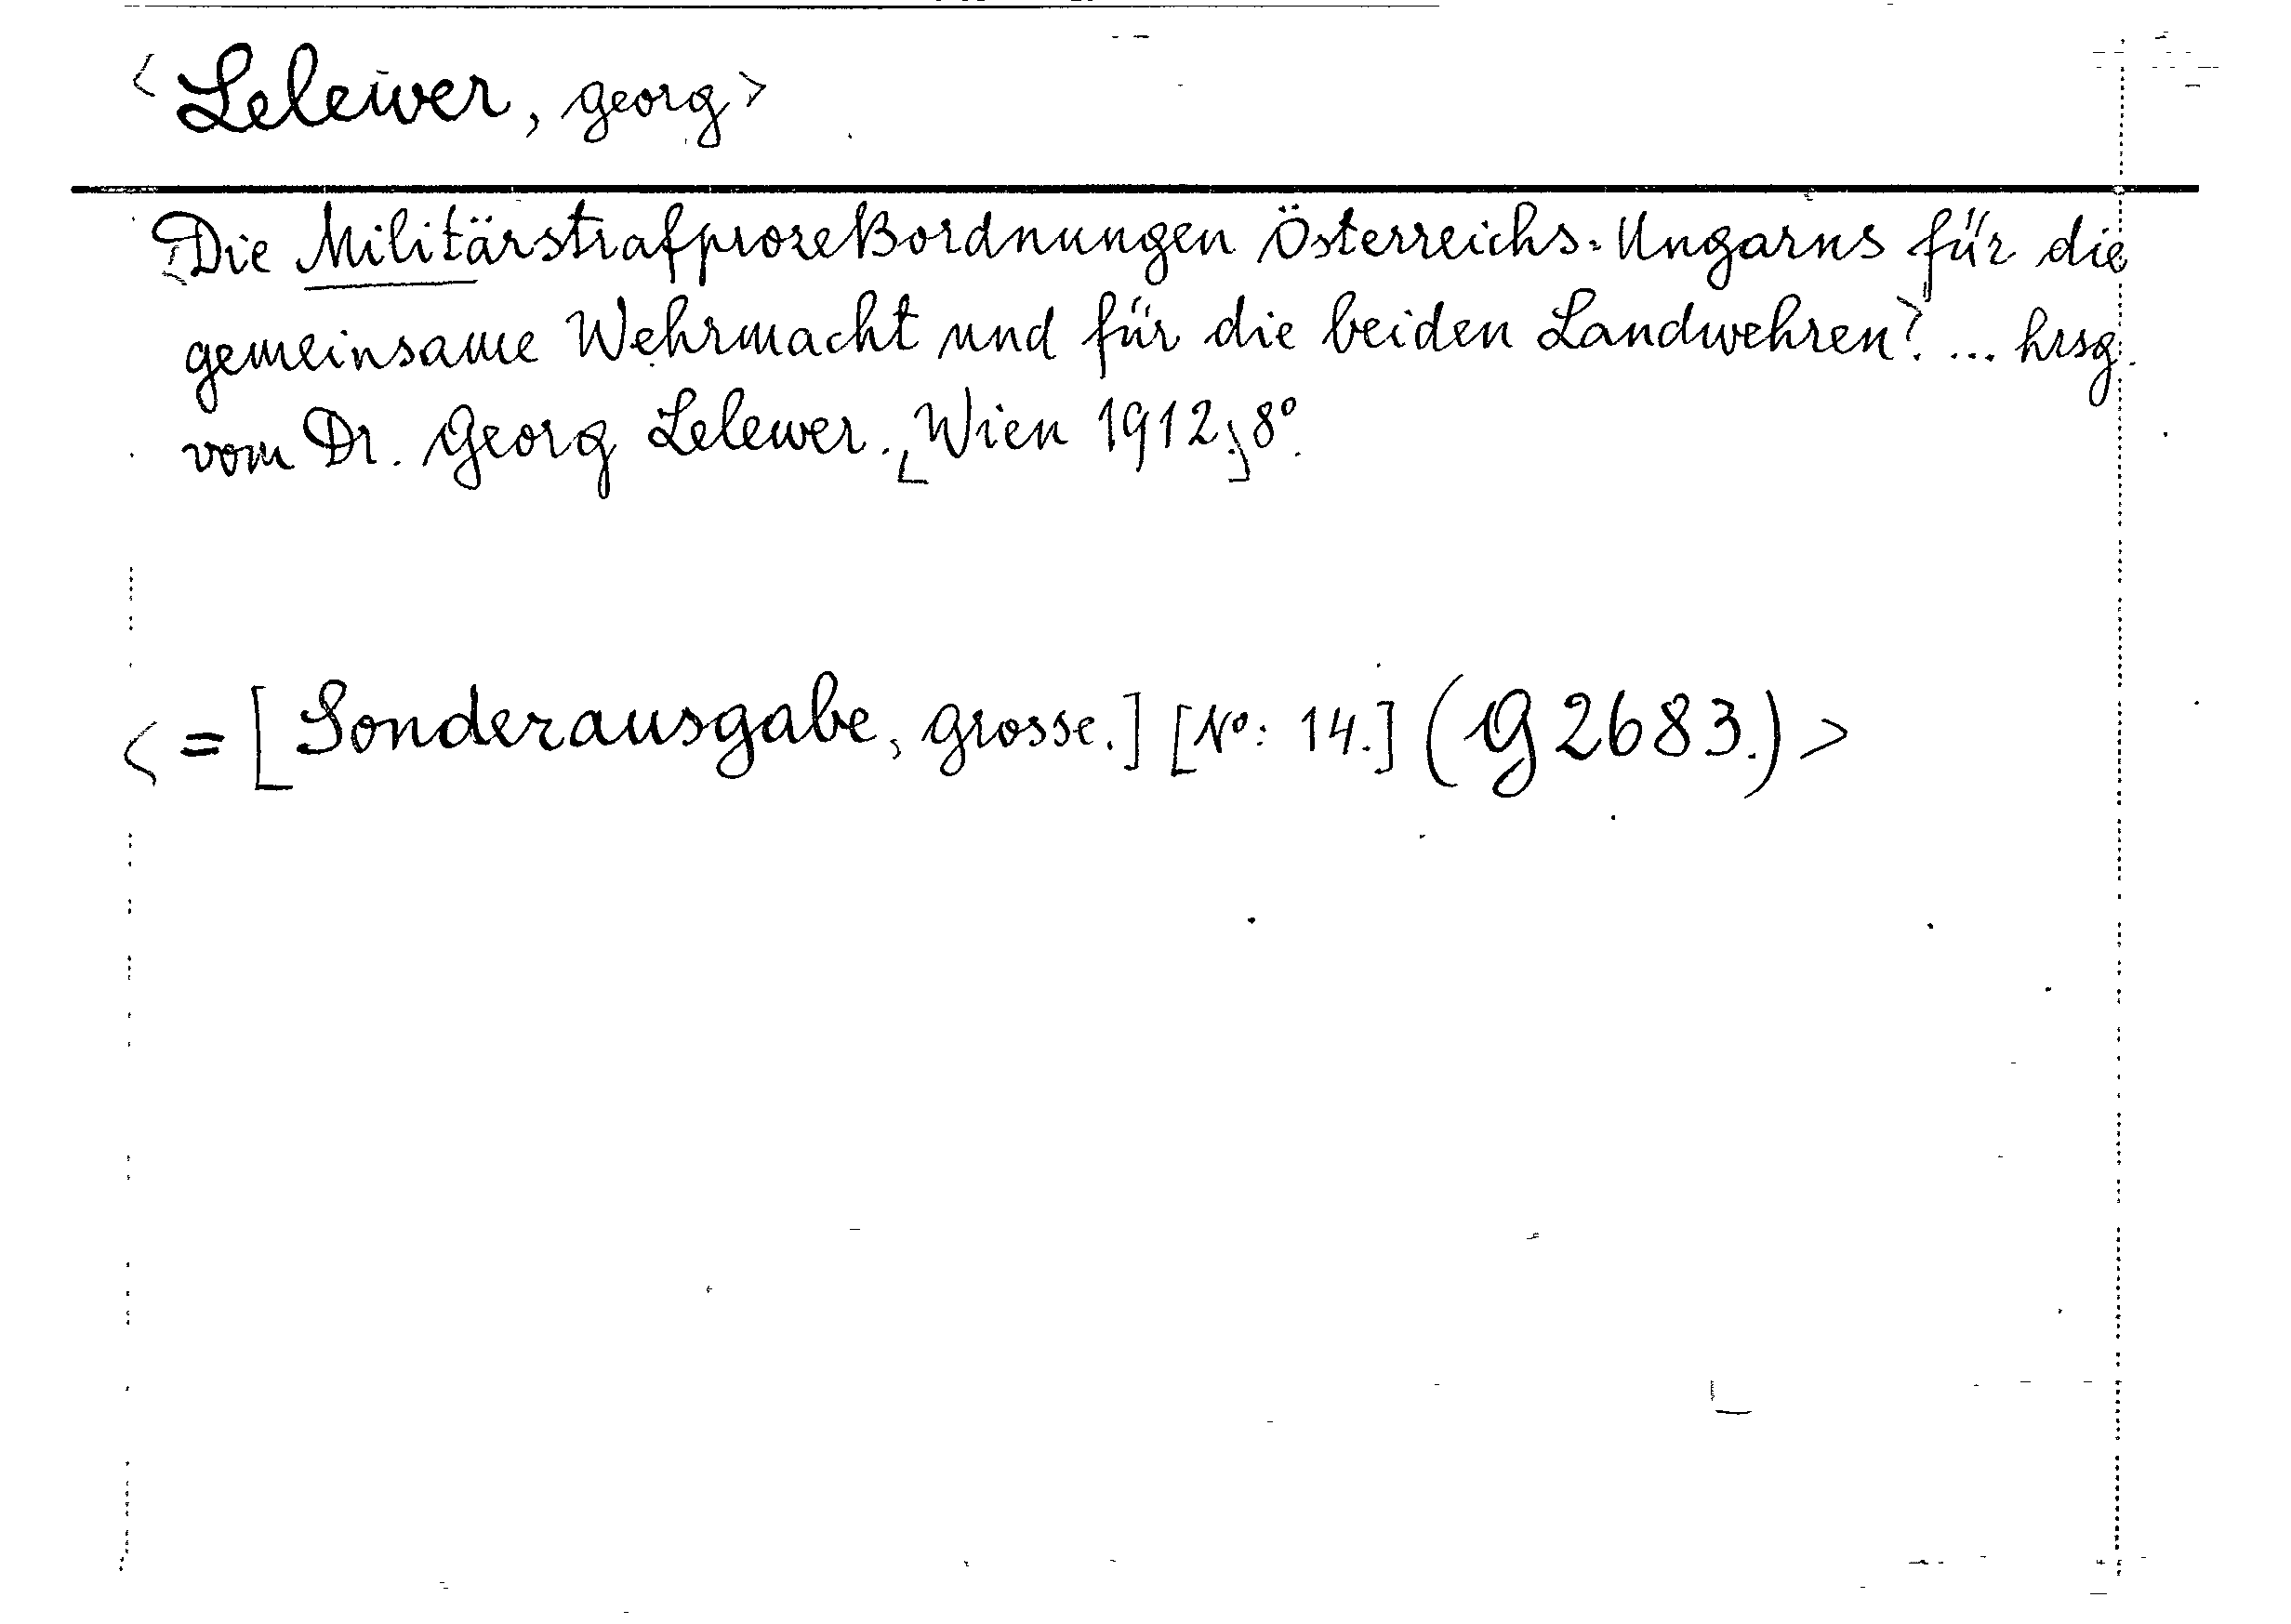 <Lelewer, Georg>
<Die Militärstrafprozeßordnungen Österreichs-Ungarns für die
gemeinsame Wehrmacht und für die beiden Landwehren>. ... hrsg.
vom Dr. Georg Lelewer. [Wien 1912.] 8°.
<= [Sonderausgabe, grosse.] [No: 14.] (G 2683.)>